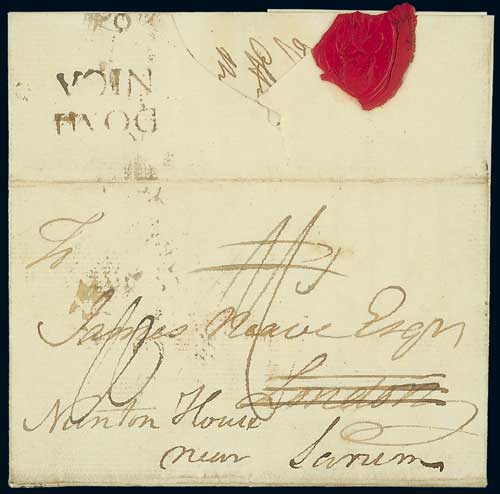 DOMI
NICA
To
James Neave Esqr
London
Nunton House
near Sarum